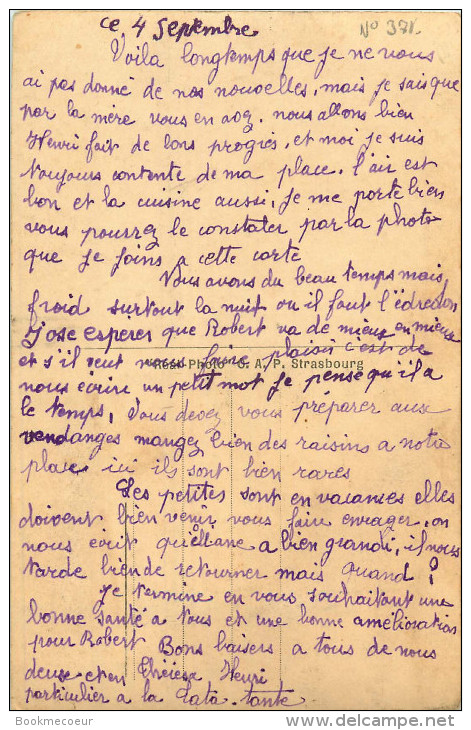 ce 4 Septembre
No 371.
Voila longtemps que je ne vous
ai pas donné de nos nouvelles, mais je sais que
par la mère vous en avez. nous allons bien
Henri fait de bons progrès, et moi je suis
toujours contente de ma place. l'air est
bon et la cuisine aussi, je me porte bien
vous pourrez le constater par la photo
que je joins a cette carte
Nous avons du beau temps mais
froid surtout la nuit ou il faut l'édredon
J'ose esperer que Robert va de mieux en mieux
et s'il veut nous faire plaisir c'est de
Réal-Photo C. A. P. Strasbourg
nous écrire un petit mot je pense qu'il a
le temps, Vous devez vous préparer aux
vendanges mangez bien des raisins a notre
place ici ils sont bien rares
Les petites sont en vacances elles
doivent bien venir vous faire enrager, on
nous écrit qu'éliane a bien grandi, il nous
tarde bien de retourner mais quand?
Je termine en vous souhaitant une
bonne santé a tous et une bonne amélioration
pour Robert Bons baisers a tous de nous
deux et en Thérèse Henri
particulier a la Tata-tante
Bookmecoeur
www.delcampe.net